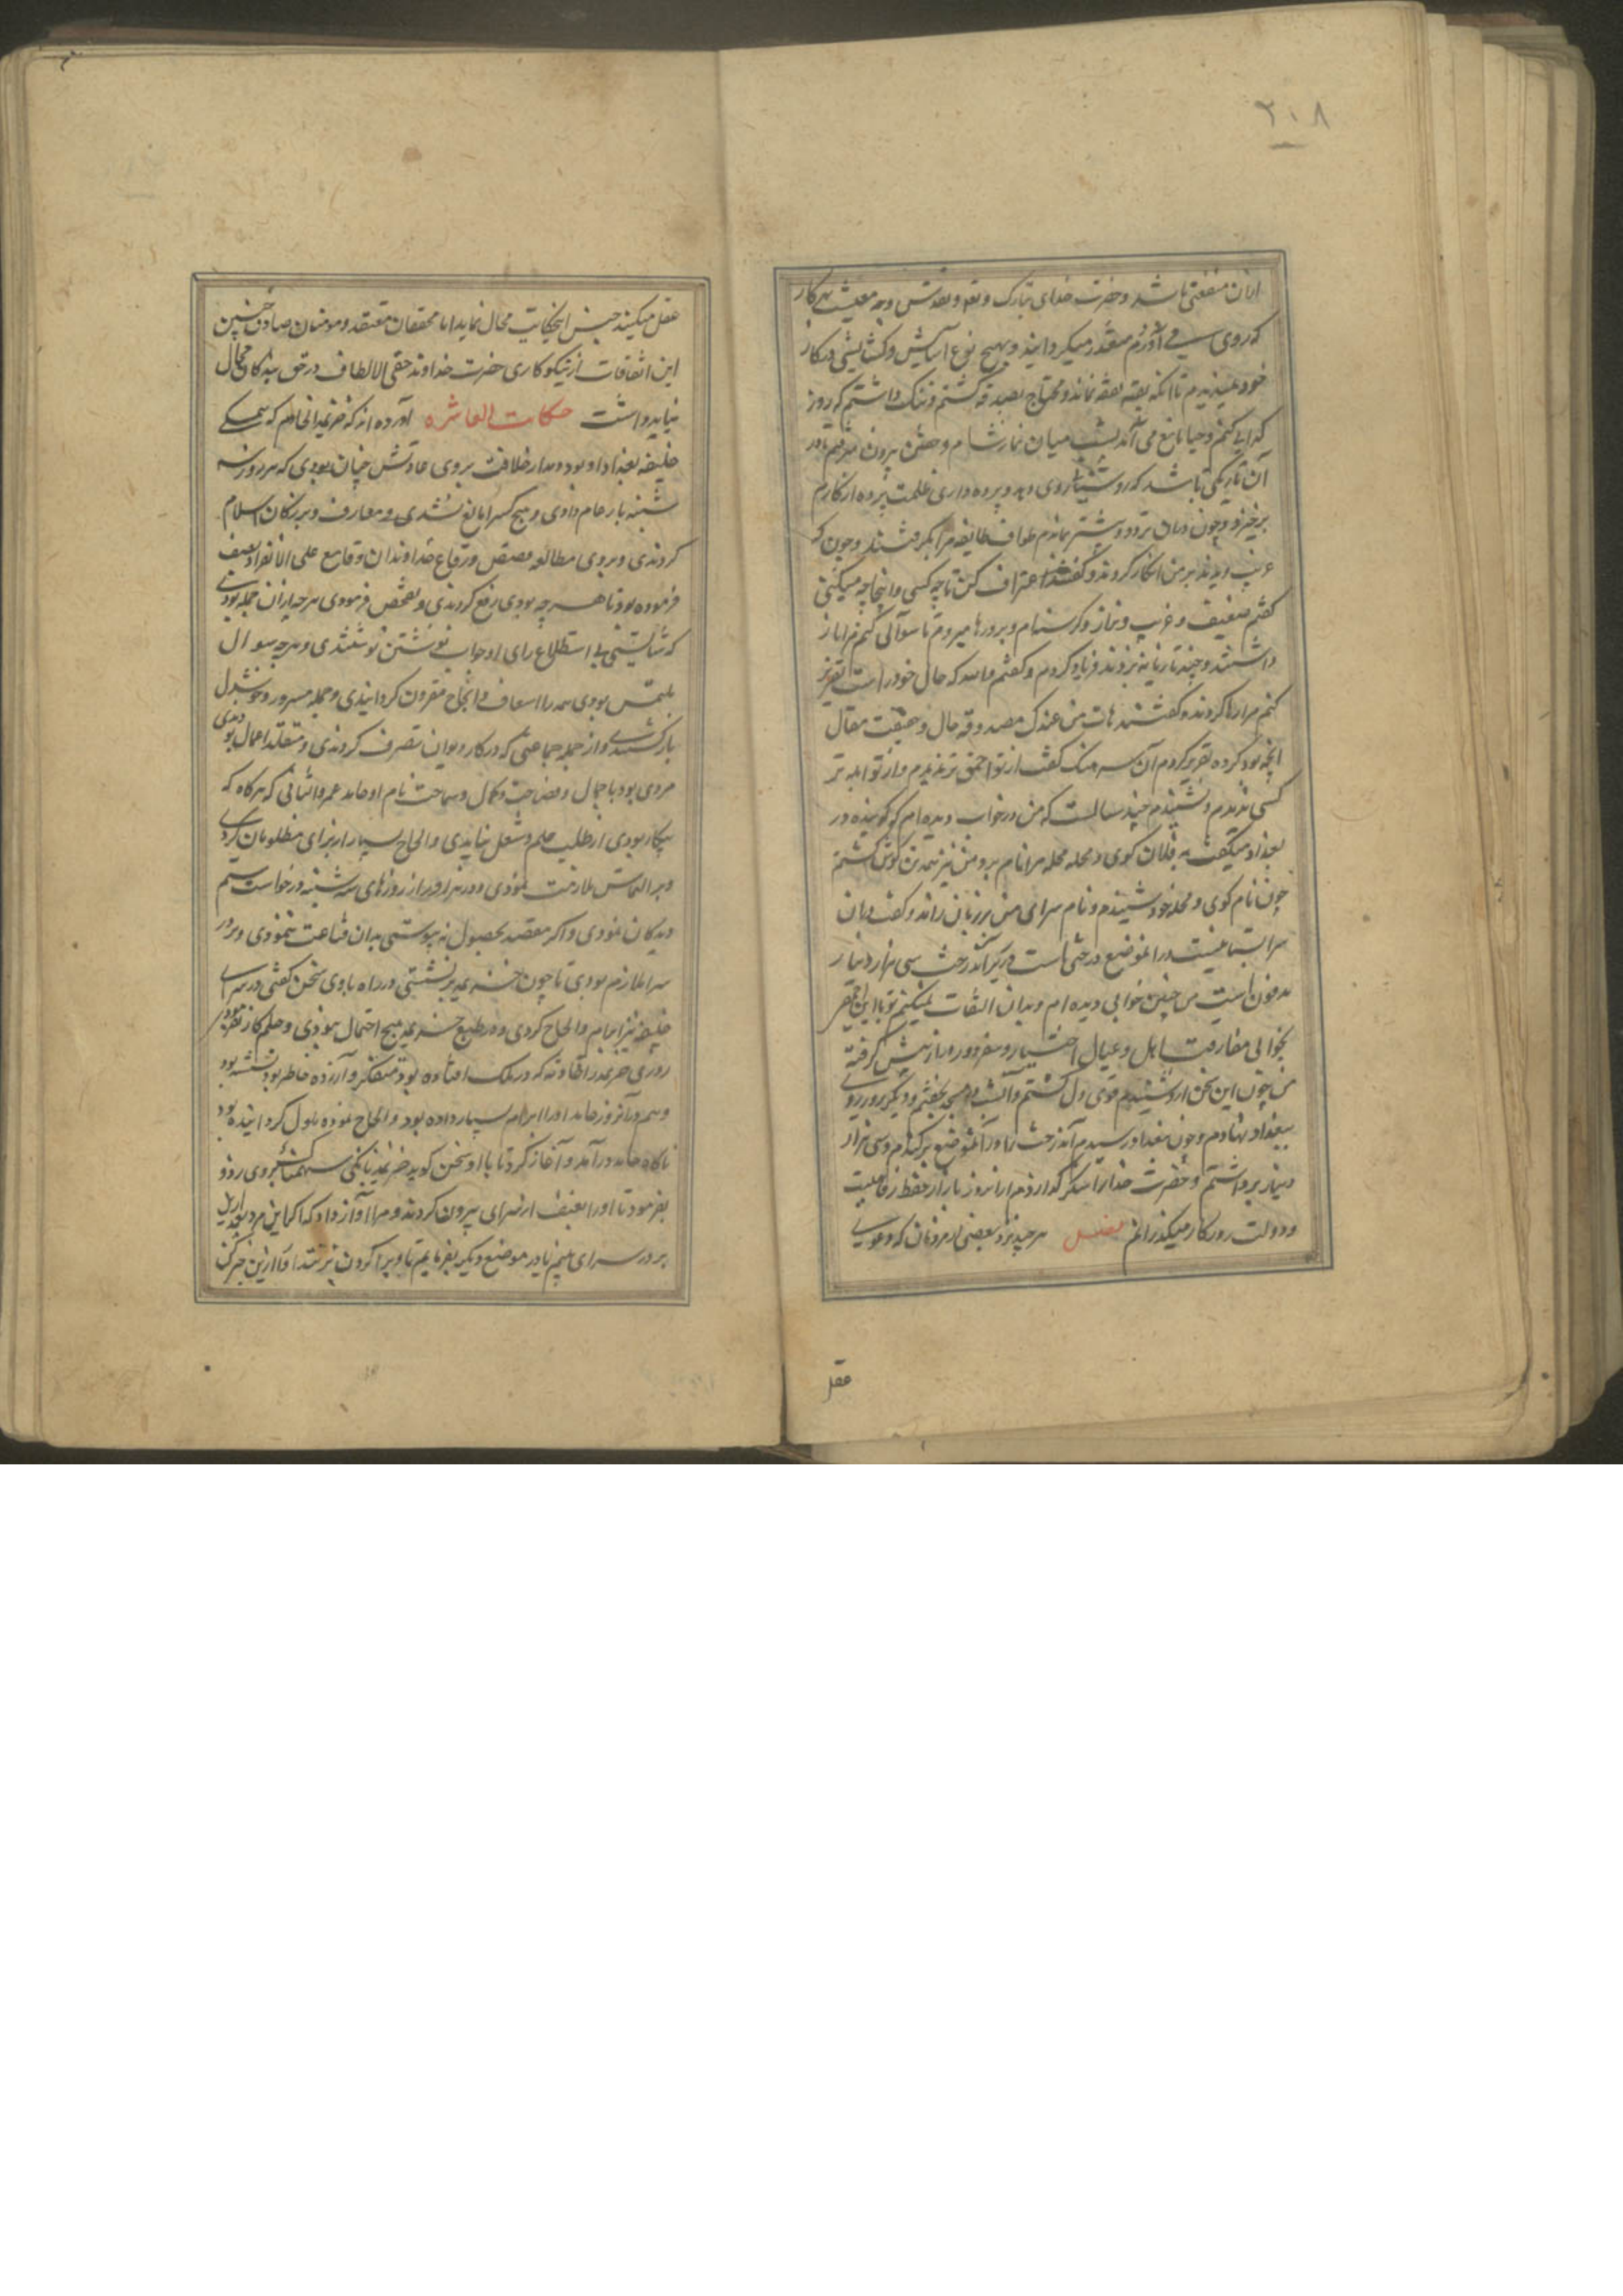 ۲۰۸
ازان منفعتی باشد و حضرت خدای تبارک و تعالی و تقدس وجه معیشت هر کار
که روی بوی آوردم مقدر میکردانید و بهیچ نوع آسایش و کشایشی در کار
خود نمیدیدم تا آنکه بقیه نفقه نماند و محتاج بصدقه کشتم و ننک داشتم که روز
کدایی کنم و حیا مانع می آمد شب میان نماز شام و خفتن بیرون میرفتم تا در
آن تاریکی باشد که روشنایی روی دهد و پرده داری ظلمت پرده از کارم
برخیزد و چون دران تردد بیشتر نماندم طواف طایفه مرا بکرفتند و چون که
غریب دیدند بر من انکار کردند و کفتند اعتراف کن تا چه کسی و اینجا چه میکنی
کفتم ضعیف و غریب و کرسنه ام و بدرها میروم تا سوالی کنم مرا باز
داشتند و چند تازیانه بزدند فریاد کردم و کفتم که حال خود راست تقریر
کنم مرا رها کردند و کفتند هات من عندک مصدوقه حال و حقیقت مقال
آنچه بود کرده تقریر کردم آن سرهنک کفت از تو احمق تر ندیدم و از تو ابله تر
کسی ندیدم و نشنیدم چند سالست که من در خواب دیده ام که کوینده در
بغداد میکفت به فلان کوی و محله مرا نام برد و من نیز همه تن کوش کشتم
چون نام کوی و محله خود شنیدم و نام سرای من بر زبان راند و کفت دران
سرا بستانیست در آنموضع درختی است و در زیر آن درخت سی هزار دینار
مدفونست من چنین خوابی دیده ام و بدان التفات نمیکنم تو با این احمقی
بخوابی مفارقت اهل و عیال اختیار و سفر دور و دراز پیش کرفته
من چون این سخن ازو شنیدم قوی دل کشتم و آنشب در مسجد بخفتم و دیکر روز روی
ببغداد نهادم و چون ببغداد رسیدم آندرخت را و آنموضع بر کندم و سی هزار
دینار برداشتم و حضرت خدا را شکر کذاردم و از آنروز باز از حفظ رفاهیت
و دولت روزکار میکذرانم فصل هر چند نزد بعضی از مردمان که دعوی
عقل
عقل میکنند جنس این حکایت محال نماید اما محققان معتقد و مومنان صادق چنین
این اتفاقات از نیکوکاری حضرت خداوند خفی الالطاف در حق بندکان محال
نباید داشت حکایت العاشره آورده اند که خزیمه ابن خازم که سمی
خلیفه بغداد او بود و مدار خلافت بروی عادتش چنان بودی که هر روز سه
شنبه بار عام دادی و هیچ کس را مانع نشدی و معارف و بزرکان اسلام
کردندی و بروی مطالعه قصص و رقاع خداوندان وقایع علی الانفراد
فرموده بود تا هر چه بودی رفع کردندی و تفحص فرمودی هر چه ازان جمله بودی
که شایستی بی استطلاع رای او جواب نوشتن نوشتندی و هر چه سوال
ملتمس بودی همه را اسعاف و انجاح مقرون کردانیدی و جمله مسرور و خوشدل
باز کشتندی و از جمله جماعتی که در کار دیوان تصرف کردندی و متقلد اعمال بودندی
مردی بود با جمال و فصاحت و کمال و سماحت نام او حامد عمرو الثانی که هر کاه که
بیکار بودی از طلب علم و شغل نیاسودی و الحاح بسیار از برای مطلوبان کردی
و بر التماس ملازمت نمودی و در هر روز از روزهای سه شنبه درخواست سیم
دیدکان نمودی و اکر مقصد بحصول نه پیوستی بدان قناعت ننمودی و بر در
سرا ملازم بودی تا چون خزیمه برنشستی در راه با وی سخن کفتی و در سرای
خلیفه نیز ابرام و الحاح کردی و در طبع خزیمه هیچ احتمال نبودی و حلم کار نفرمودی
روزی خزیمه را اتفاقی که در ملک افتاده بود متفکر و آزرده خاطر بود نشسته بود
و هم در آنروز حامد او را ابرام بسیار داده بود و الحاح نموده ملول کردانیده بود
ناکاه حامد در آمد و آغاز کرد تا با او سخن کوید خزیمه بانکی سهمناک بروی زد و
بفرمود تا او را بعنف از سرای بیرون کردند و مرا آواز داد که اکر این مرد بعد ازین
بر در سرای بینم یا در موضع دیکر بفرمایم تا ویرا کردن بزنند او را ازین خبر کن